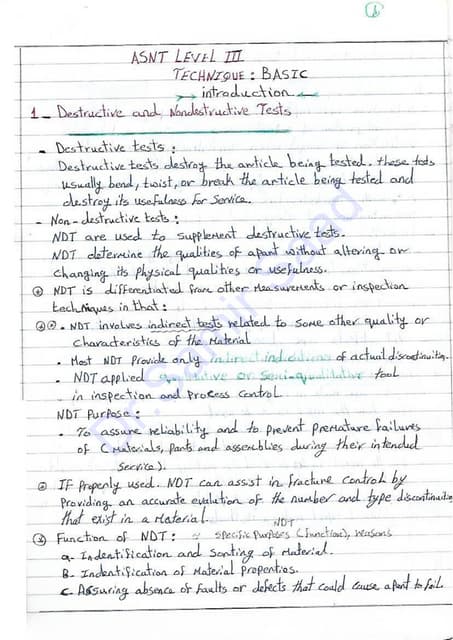 ASNT LEVEL III
TECHNIQUE : BASIC
introduction
1 - Destructive and Nondestructive Tests
- Destructive tests :
Destructive tests destroy the article being tested. these tests
usually bend, twist, or break the article being tested and
destroy its usefulness for service.
- Non-destructive tests :
NDT are used to supplement destructive tests.
NDT determine the qualities of apart without altering or
changing its physical qualities or usefulness.
NDT is differentiated from other measurements or inspection
techniques in that :
. NDT involves indirect tests related to some other quality or
characteristics of the material
. Most NDT provide only indirect indications of actual discontinuities.
. NDT applied qualitative or semi-quantitative tool
in inspection and process control
NDT purpose :
. To assure reliability and to prevent premature failures
of (materials, parts and assemblies during their intended
service).
IF properly used. NDT can assist in fracture control by
providing an accurate evalution of the number and type discontinuities
that exist in a material.
NDT
③ Function of NDT : specific purposes (function), reasons
a- Indentification and sorting of material.
B- Indentification of Material properties.
C- Assuring absence of faults or defects that could cause apart to fail.